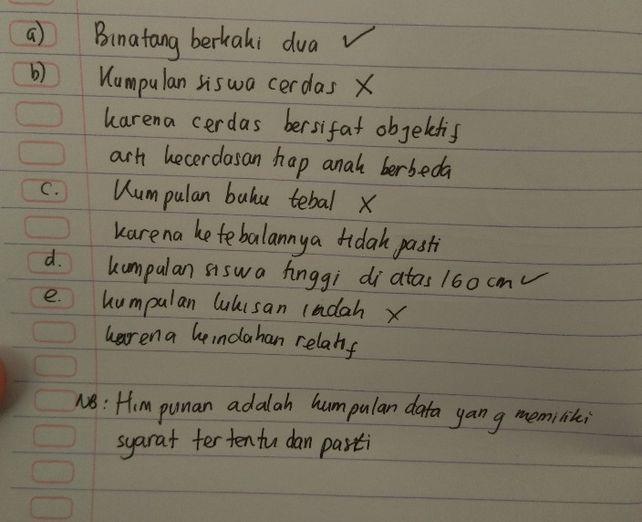 a) Binatang berkaki dua ✓
b) Kumpulan siswa cerdas X
karena cerdas bersifat objektif
arti kecerdasan tiap anak berbeda
c. Kumpulan buku tebal X
karena ketebalannya tidak pasti
d. kumpulan siswa tinggi di atas 160 cm ✓
e. kumpulan lukisan indah X
karena keindahan relatif
NB: Himpunan adalah kumpulan data yang memiliki
syarat tertentu dan pasti